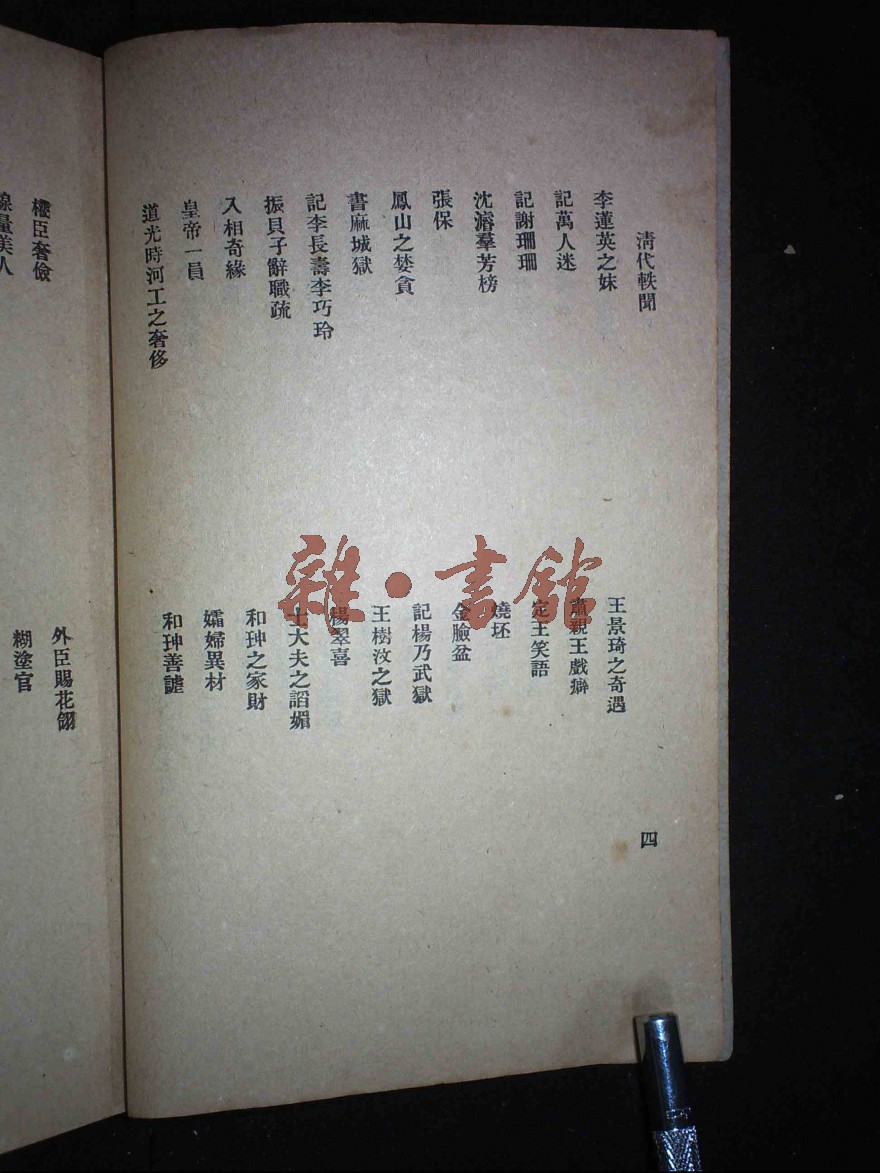 清代軼聞
李蓮英之妹
記萬人迷
記謝珊珊
沈濬羣芳榜
張保
鳳山之婪貪
書麻城獄
記李長壽李巧玲
振貝子辭職疏
入相奇緣
皇帝一員
道光時河工之奢侈
王景琦之奇遇
肅親王戲癖
定王笑語
燒坯
金臉盆
記楊乃武獄
王樹汶之獄
楊翠喜
士大夫之諂媚
和珅之家財
孀婦異材
和珅善謔
四
權臣奢儉
量美人
外臣賜花翎
糊塗官
雜·書館